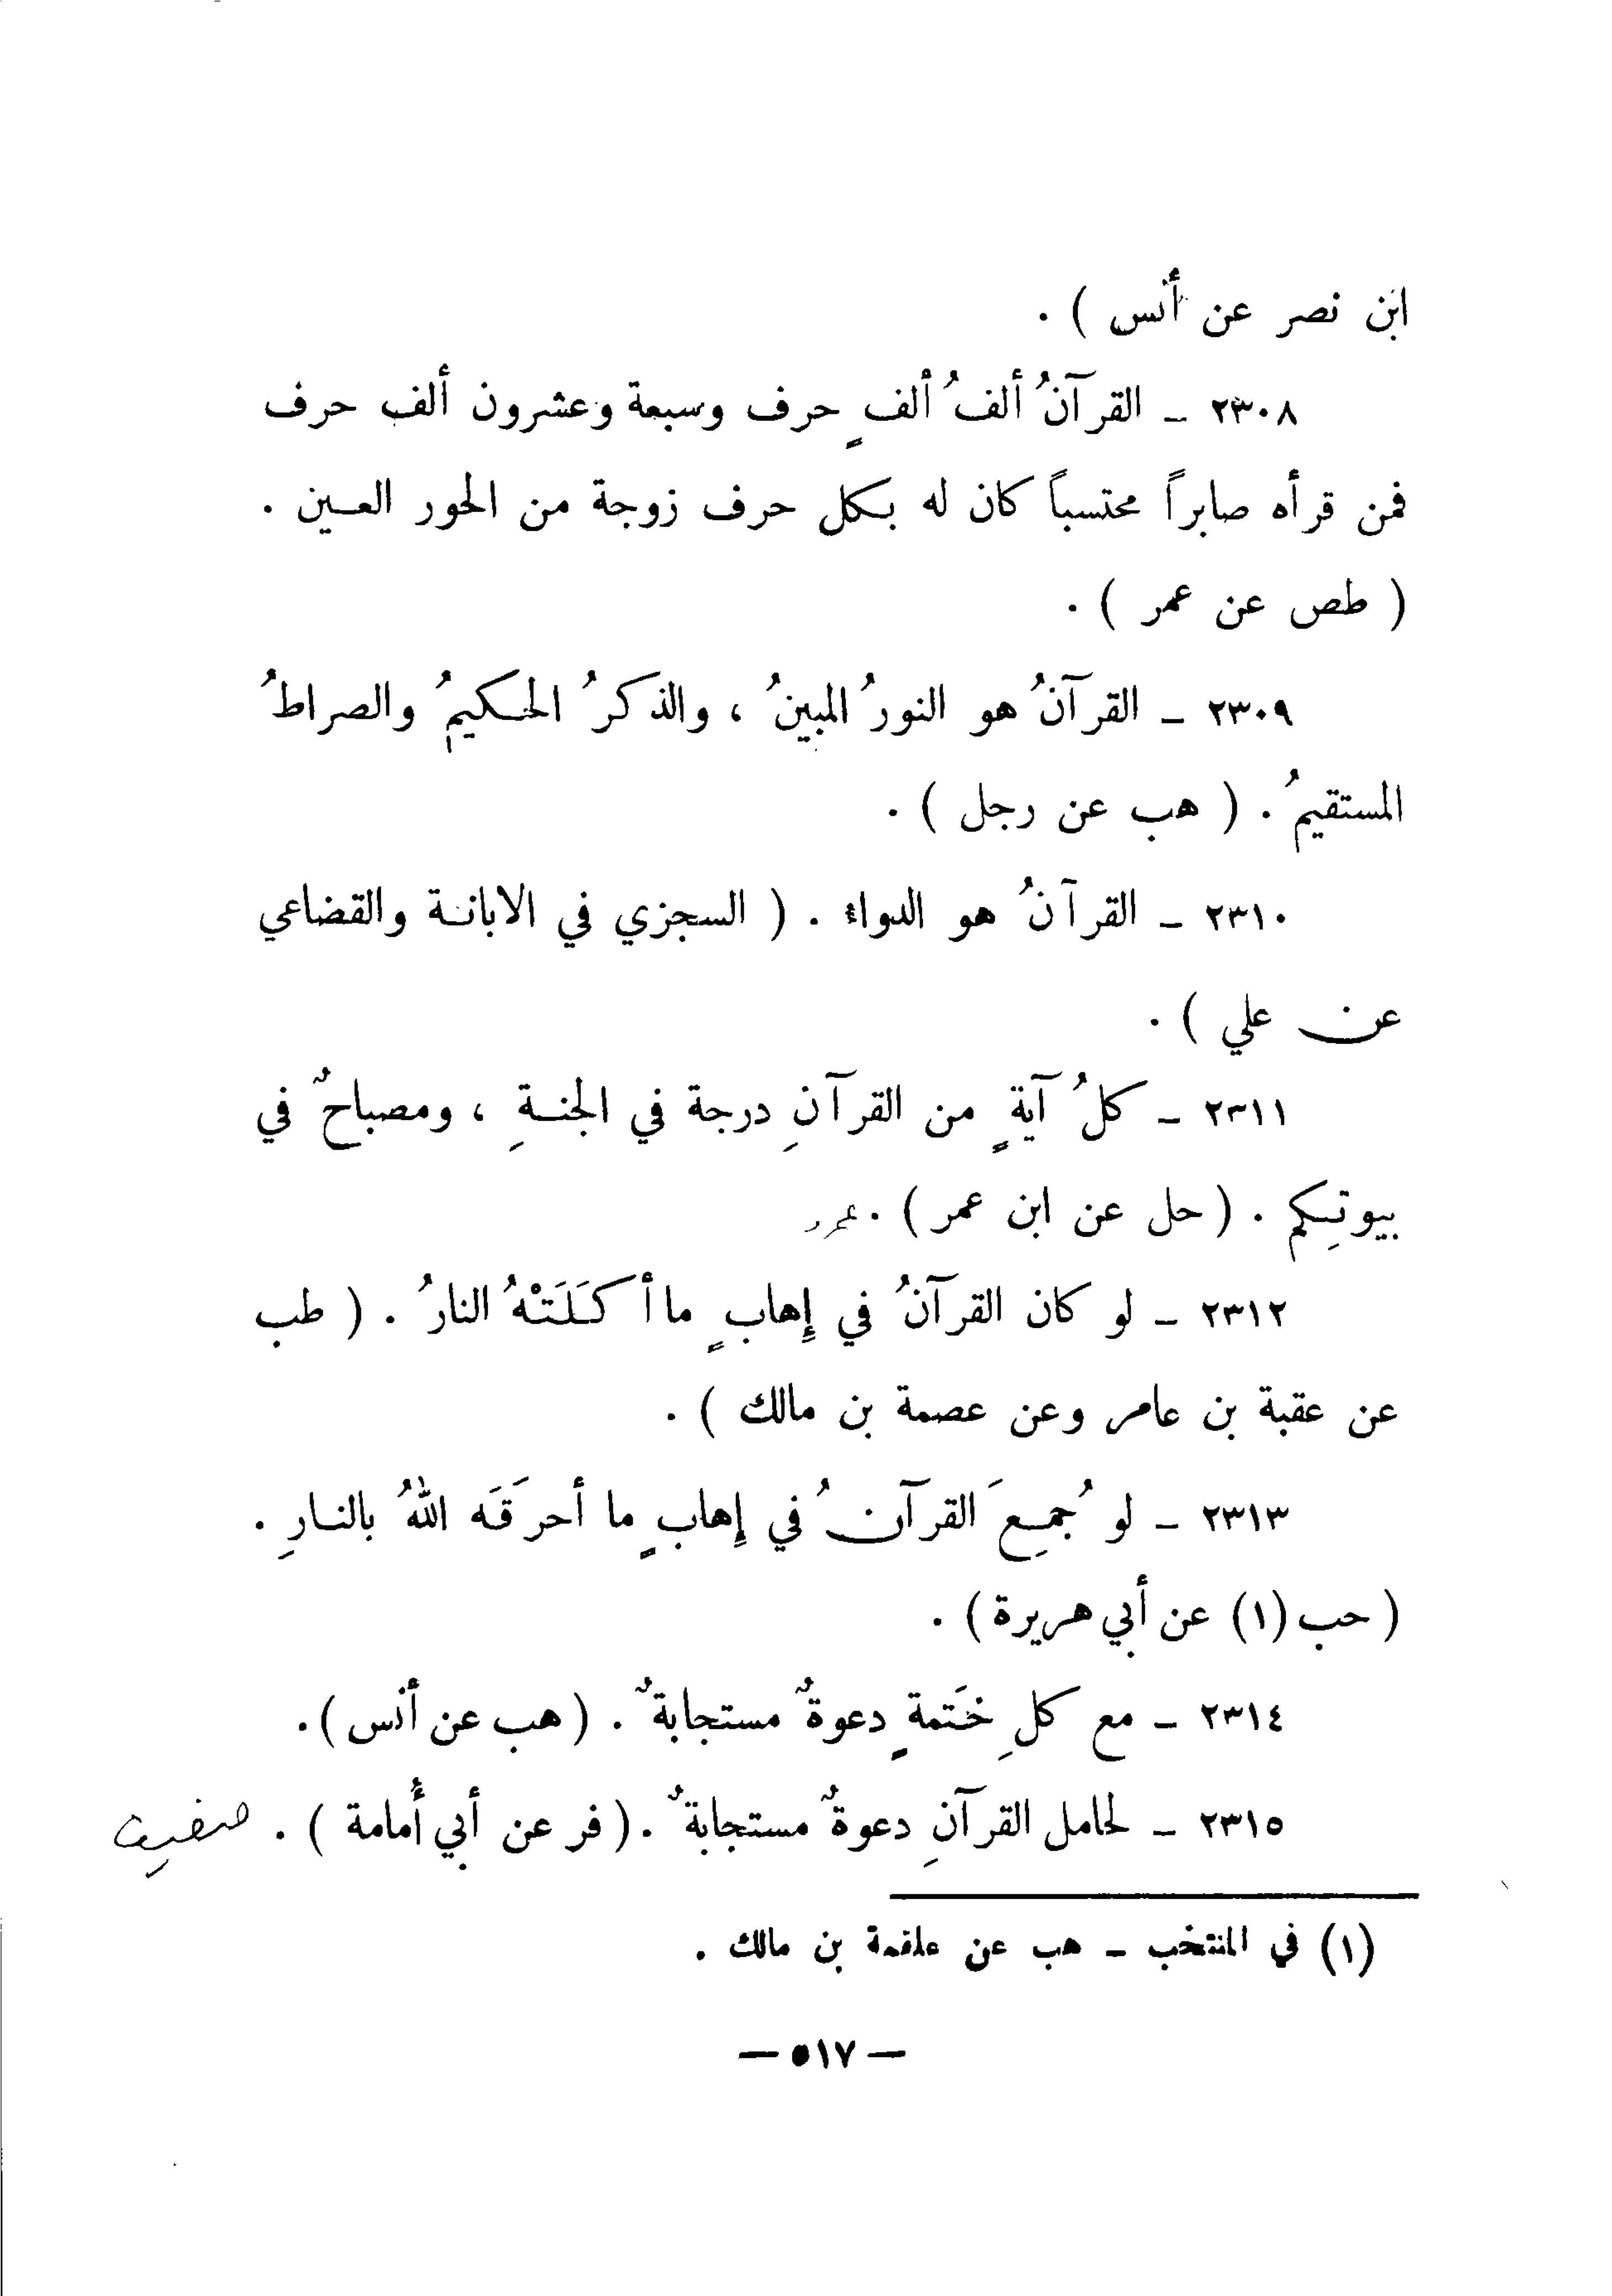 ابن نصر عن أنس ) .
٢٣٠٨ ـ القرآنُ ألفُ ألفٍ حرف وسبعة وعشرون ألف حرف
فمن قرأه صابراً محتسباً كان له بكل حرف زوجة من الحور العين .
( طص عن عمر ) .
٢٣٠٩ ـ القرآنُ هو النورُ المبينُ ، والذكرُ الحكيمُ والصراطُ
المستقيمُ . ( هب عن رجل ) .
٢٣١٠ ـ القرآنُ هو الدواء . ( السجزي في الابانة والقضاعي
عن علي ) .
٢٣١١ ـ كلُ آيةٍ من القرآنِ درجة في الجنةِ ، ومصباحٌ في
بيوتِكم . ( حل عن ابن عمر ) .
٢٣١٢ ـ لو كان القرآنُ في إِهابٍ ما أكَلَتْهُ النارُ . ( طب
عن عقبة بن عامر وعن عصمة بن مالك ) .
٢٣١٣ ـ لو جُمِعَ القرآنُ في إِهابٍ ما أحرَقَه اللهُ بالنارِ .
( حب (١) عن أبي هريرة ) .
٢٣١٤ ـ مع كلِ خَتمةٍ دعوةٌ مستجابةٌ . ( هب عن أنس ) .
٢٣١٥ ـ لحامل القرآنِ دعوةٌ مستجابةٌ . ( فر عن أبي أُمامة ) . ضعيف
(١) في المنتخب ـ هب عن علقمة بن مالك .
— ٥١٧ —